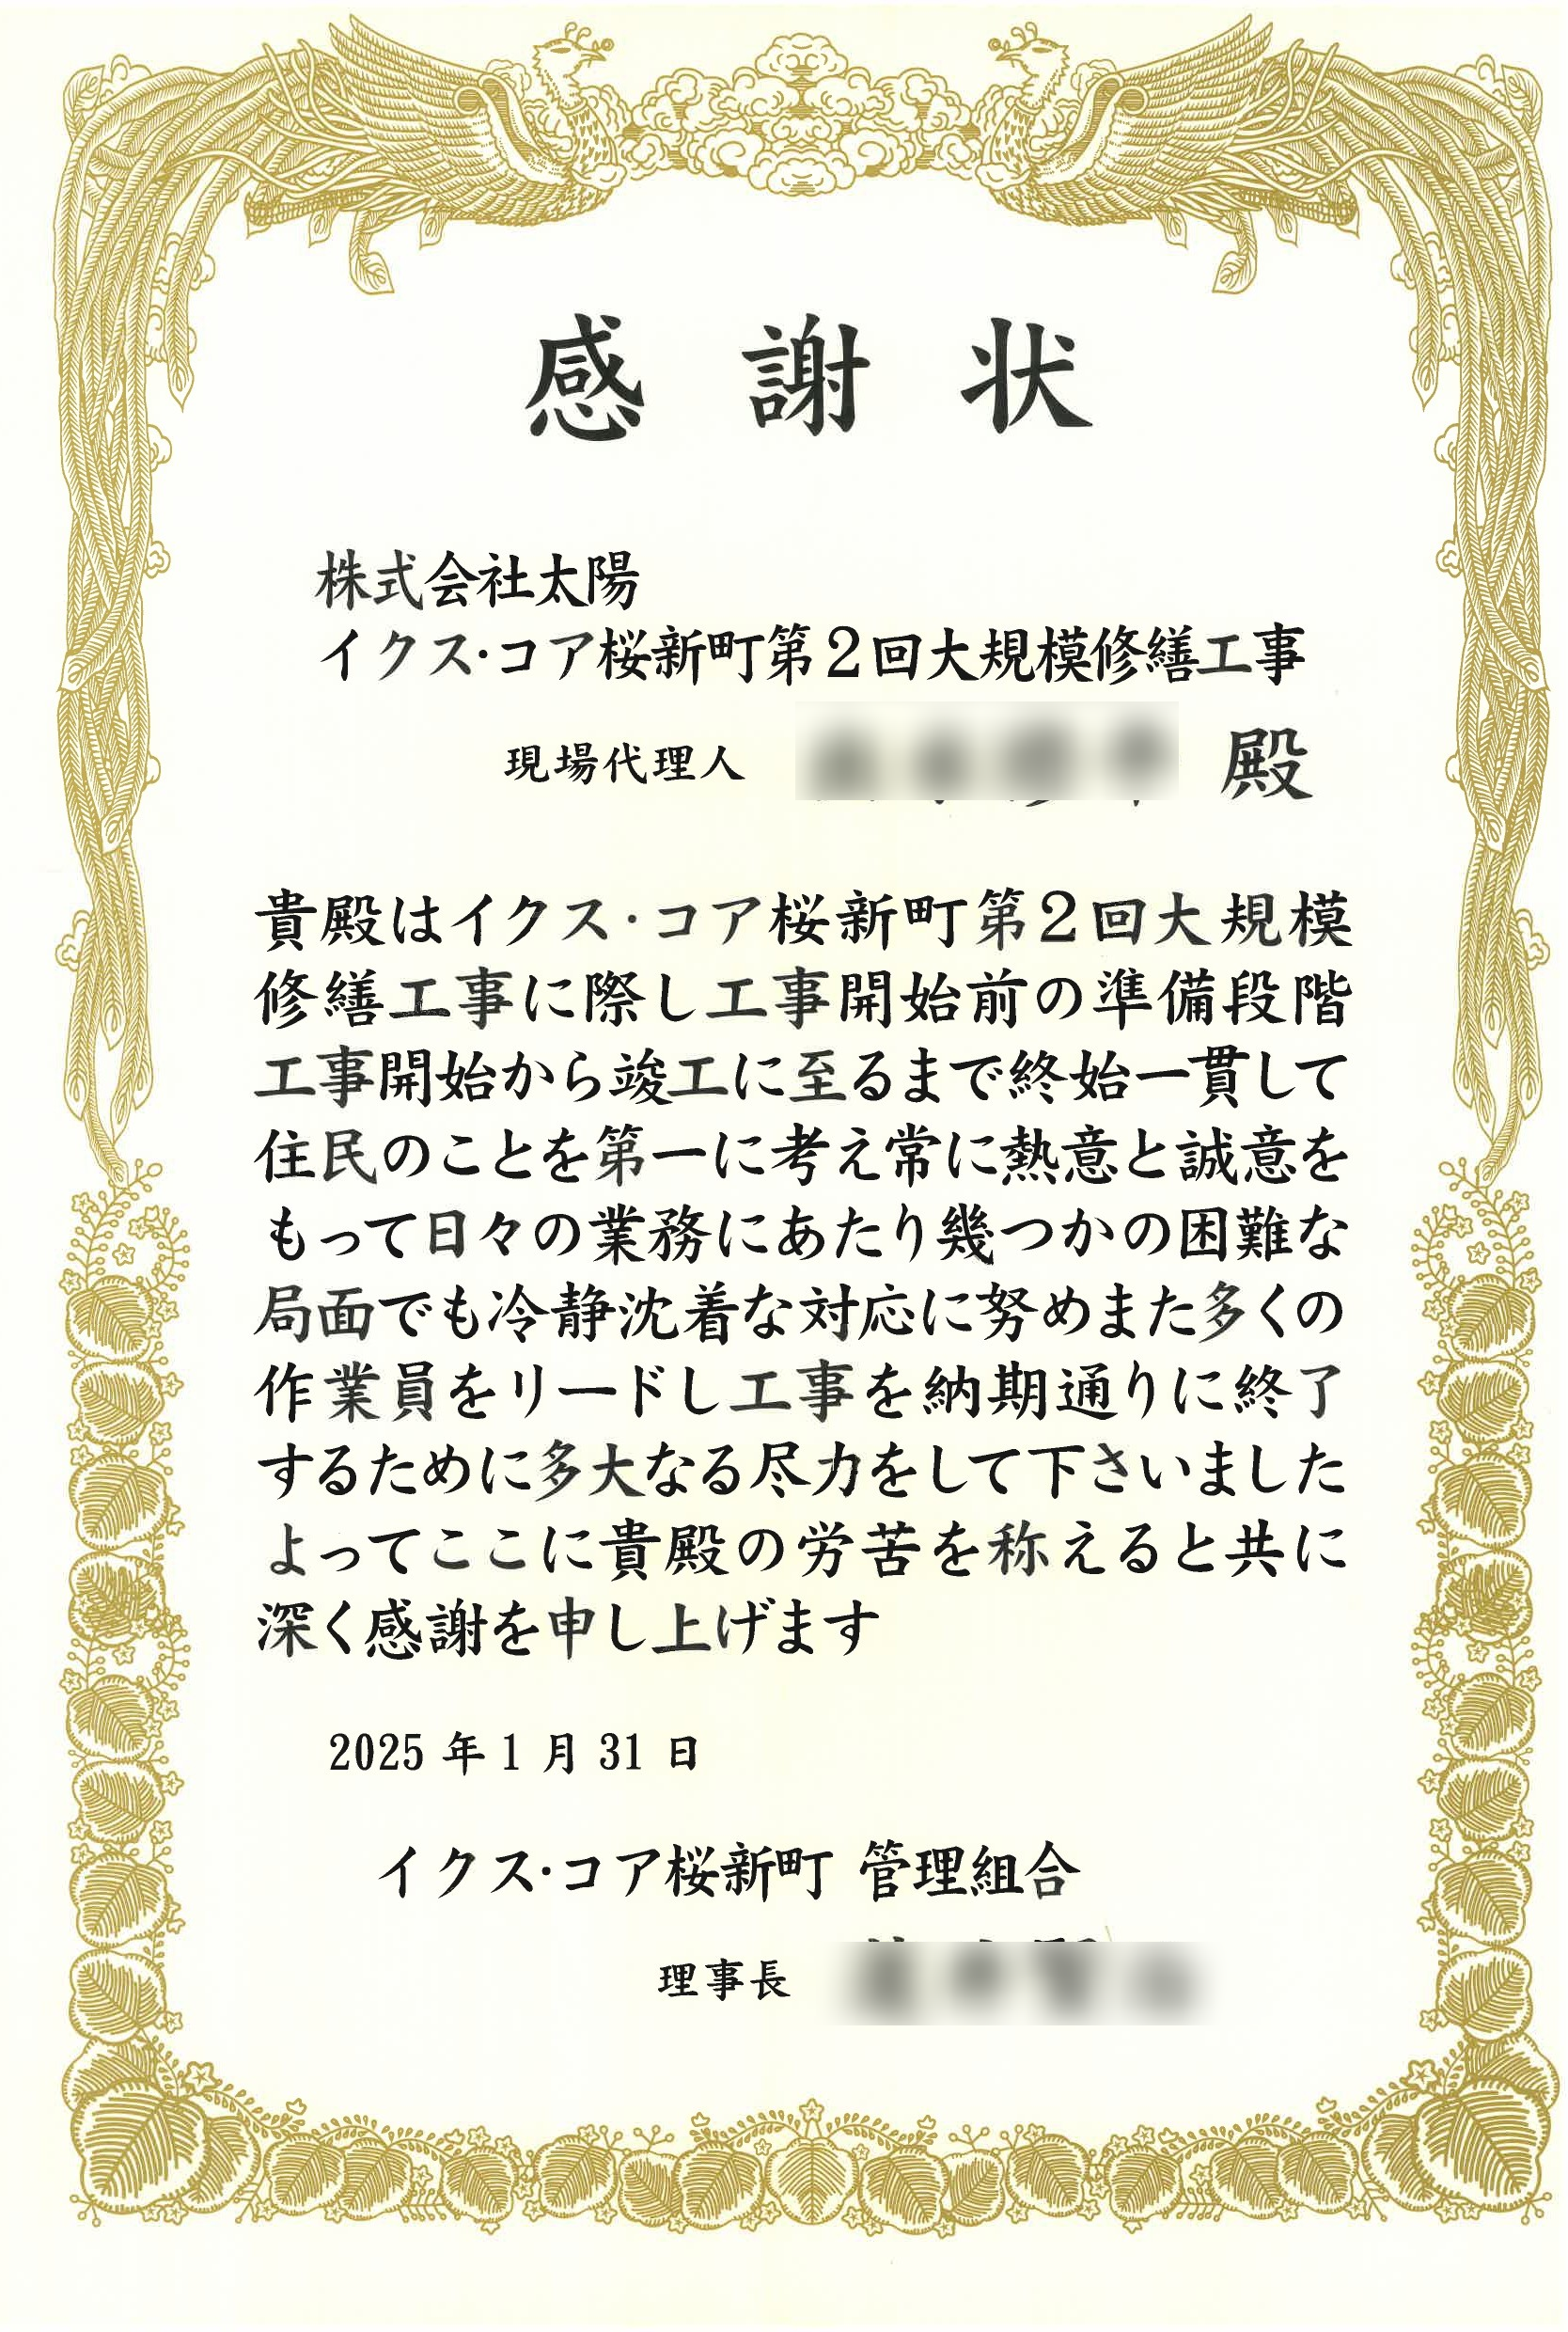 感謝状
株式会社太陽
イクス・コア桜新町第2回大規模修繕工事
現場代理人 殿
貴殿はイクス・コア桜新町第2回大規模
修繕工事に際し工事開始前の準備段階
工事開始から竣工に至るまで終始一貫して
住民のことを第一に考え常に熱意と誠意を
もって日々の業務にあたり幾つかの困難な
局面でも冷静沈着な対応に努めまた多くの
作業員をリードし工事を納期通りに終了
するために多大なる尽力をして下さいました
よってここに貴殿の労苦を称えると共に
深く感謝を申し上げます
2025 年 1 月 31 日
イクス・コア桜新町 管理組合
理事長